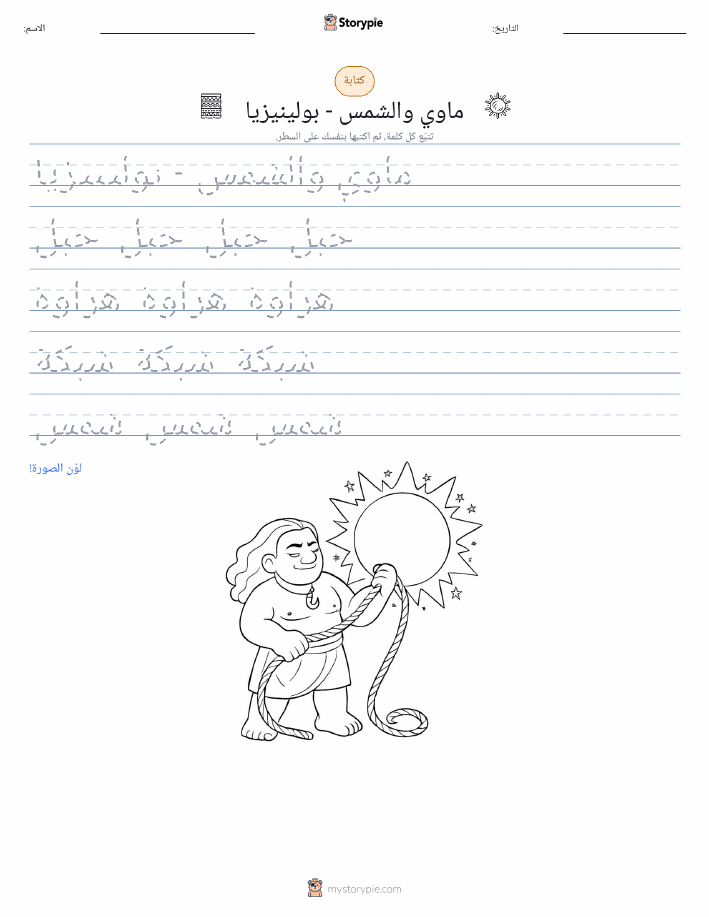 Storypie
الاسم:
التاريخ:
كتابة
ماوي والشمس - بولينيزيا
تتبّع كل كلمة، ثم اكتبها بنفسك على السطر.
ماوي والشمس - بولينيزيا
حبل حبل حبل حبل
هراوة هراوة هراوة
شبكة شبكة شبكة
شمس شمس شمس
لوّن الصورة!
mystorypie.com